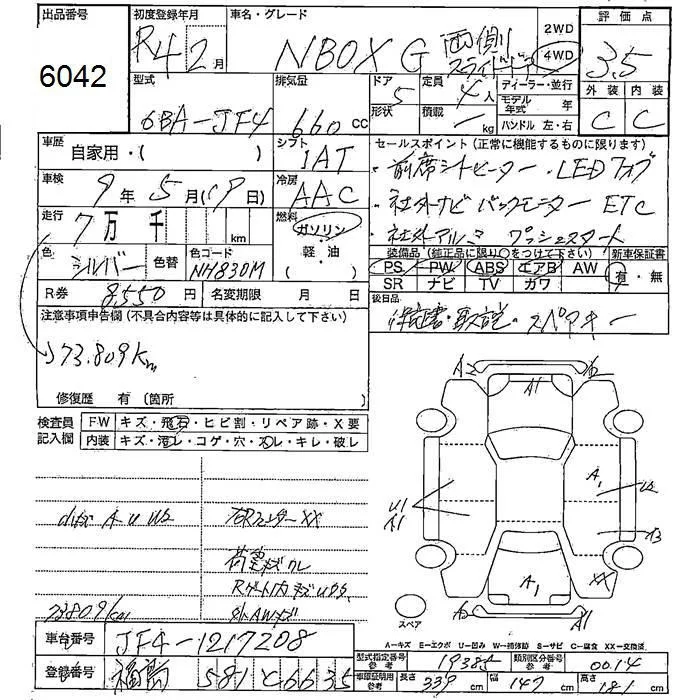 出品番号
6042
初度登録年月
R4 2月
車名・グレード
NBOX G 両側スライドドア
2WD
4WD
評価点
3.5
外装 内装
C C
型式
6BA-JF4
排気量
660 cc
ドア
5
形状
定員
4人
積載
kg
ディーラー・並行
モデル年式 年
ハンドル 左・右
車歴
自家用・( )
シフト
IAT
車検
9年 5月(19日)
冷房
AAC
走行
7万 千 km
燃料
ガソリン
軽・油
色
シルバー
色替
色コード
NH830M
R券
8,550円
名変期限 月 日
セールスポイント (正常に機能するものに限ります)
・前席シートヒーター・LEDフォグ
・社外ナビ バックモニター ETC
・社外アルミ プッシュスタート
装備品 (純正品に限り○をつけて下さい)
新車保証書
PS PW ABS エアB AW
SR ナビ TV カワ
有・無
後日品
保証書・取説・スペアキー
注意事項申告欄 (不具合内容等は具体的に記入して下さい)
73.809Km
修復歴 有 (箇所
検査員記入欄
FW キズ・飛石・ヒビ割・リペア跡・X要
内装 キズ・汚レ・コゲ・穴・スレ・キレ・破レ
右Rフェンダー XX
荷室キズ
Rゲート内
外AWキズ
73809km
A2
A1
A2
U1
A1
A1
U2
A3
XX
A1
A2
A1
スペア
A-キズ E-エクボ U-凹み W-補修跡 S-サビ C-腐食 XX-交換済
車台番号
JF4-1217208
登録番号
福島 581 そ 6635
型式指定番号 参考
19385
類別区分番号 参考
0014
車庫証明用 参考
長さ 339 cm
幅 147 cm
高さ 181 cm